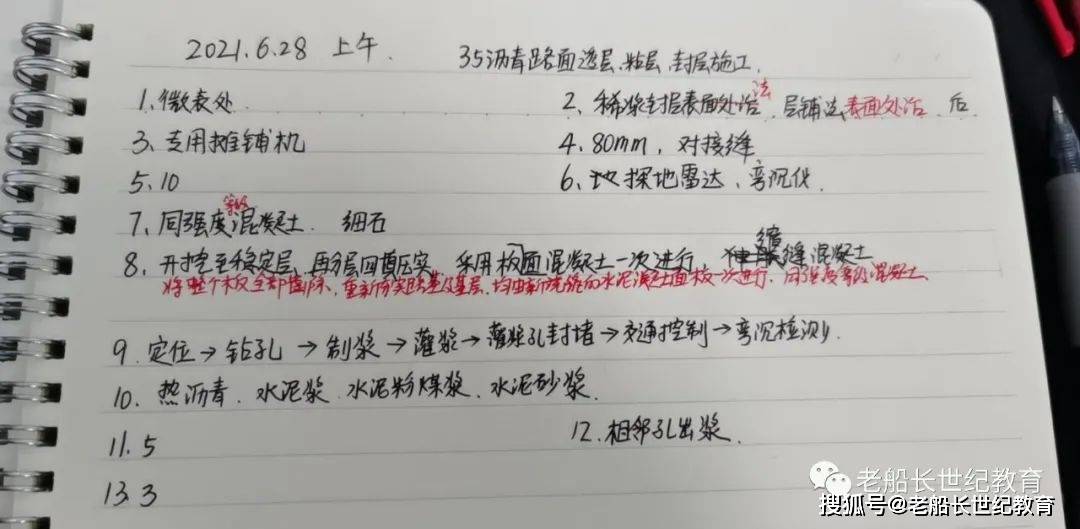 2021.6.28 上午. 35沥青路面透层.粘层.封层施工.
1、微表处. 2、稀浆封层表面处治法、层铺法表面处治、后
3、专用摊铺机 4.80mm, 对接缝
5.10 6、地探地雷达、弯沉仪.
7、同强度等级混凝土. 细石
8、开挖至稳定层,再分层回填压实 利用板面混凝土一次进行, 缩缝混凝土
将整个板全部凿除,重新夯实路基及基层,均由新浇筑的水泥混凝土面板一次进行.同强度等级混凝土.
9.定位→钻孔→制浆→灌浆→灌浆孔封堵→交通控制→弯沉检测
10、热沥青、水泥浆、水泥粉煤浆、水泥砂浆.
11.5 12.相邻孔出浆.
13.3
老船长世纪教育
搜狐号@老船长世纪教育